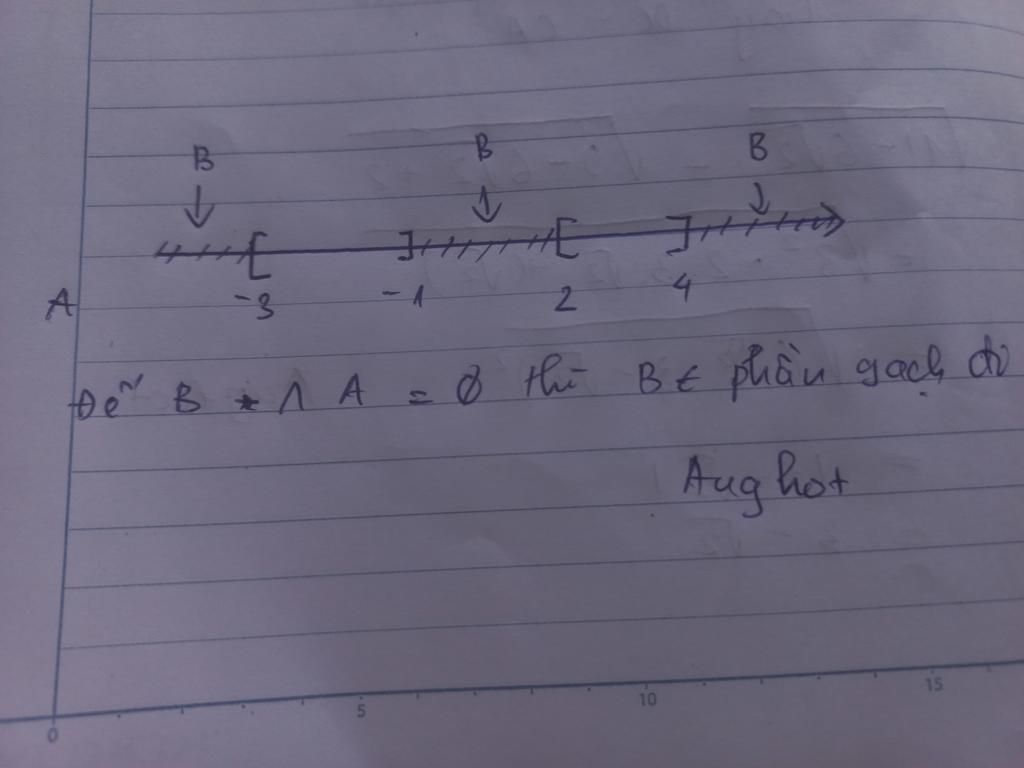 B B B
-3 -1 2 4
A
Để B ∩ A = ∅ thì B ∈ phần gạch đó
Aug hot
0 5 10 15